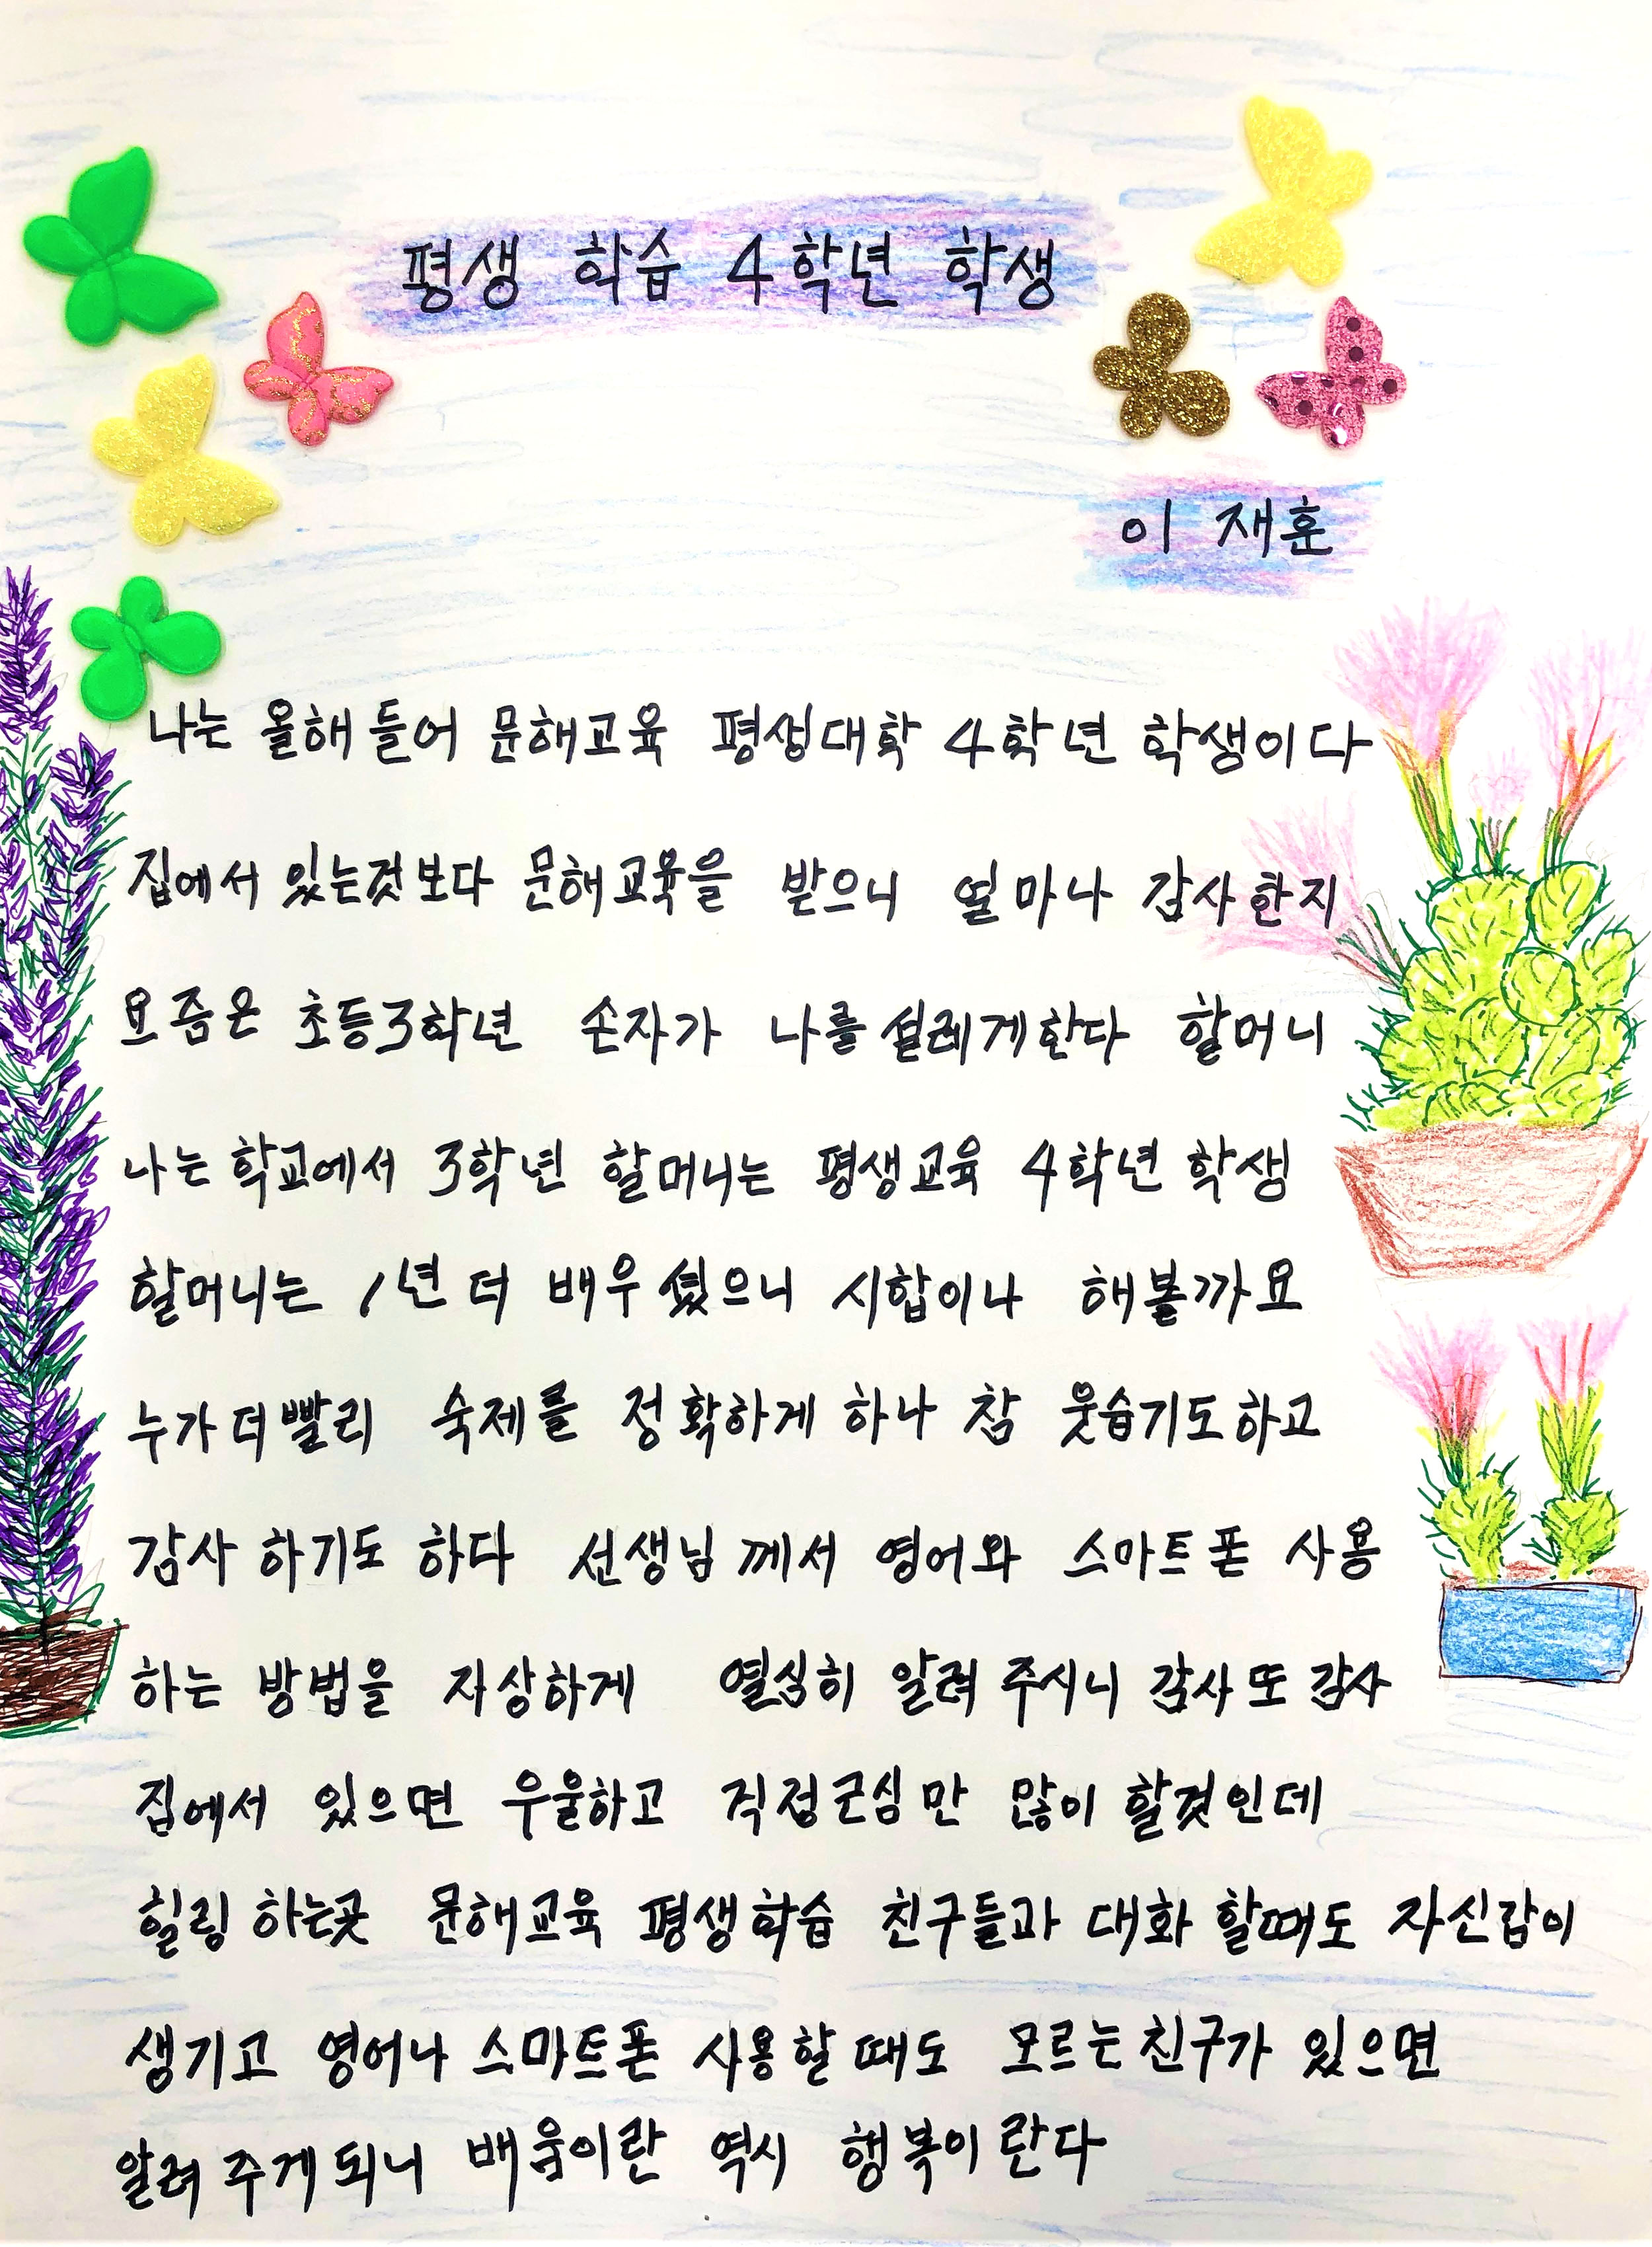 평생 학습 4학년 학생
이 재훈
나는 올해 들어 문해교육 평생대학 4학년 학생이다
집에서 있는것 보다 문해교육을 받으니 얼마나 감사한지
요즘은 초등3학년 손자가 나를 설레게한다 할머니
나는 학교에서 3학년 할머니는 평생교육 4학년 학생
할머니는 1년 더 배우셨으니 시합이나 해볼까요
누가 더 빨리 숙제를 정확하게 하나 참 웃습기도하고
감사 하기도 하다 선생님 께서 영어와 스마트 폰 사용
하는 방법을 자상하게 열심히 알려 주시니 감사 또 감사
집에서 있으면 우울하고 걱정근심 만 많이 할것인데
힐링 하는곳 문해교육 평생학습 친구들과 대화 할때도 자신감이
생기고 영어나 스마트폰 사용할 때도 모르는 친구가 있으면
알려 주게 되니 배움이란 역시 행복이란다